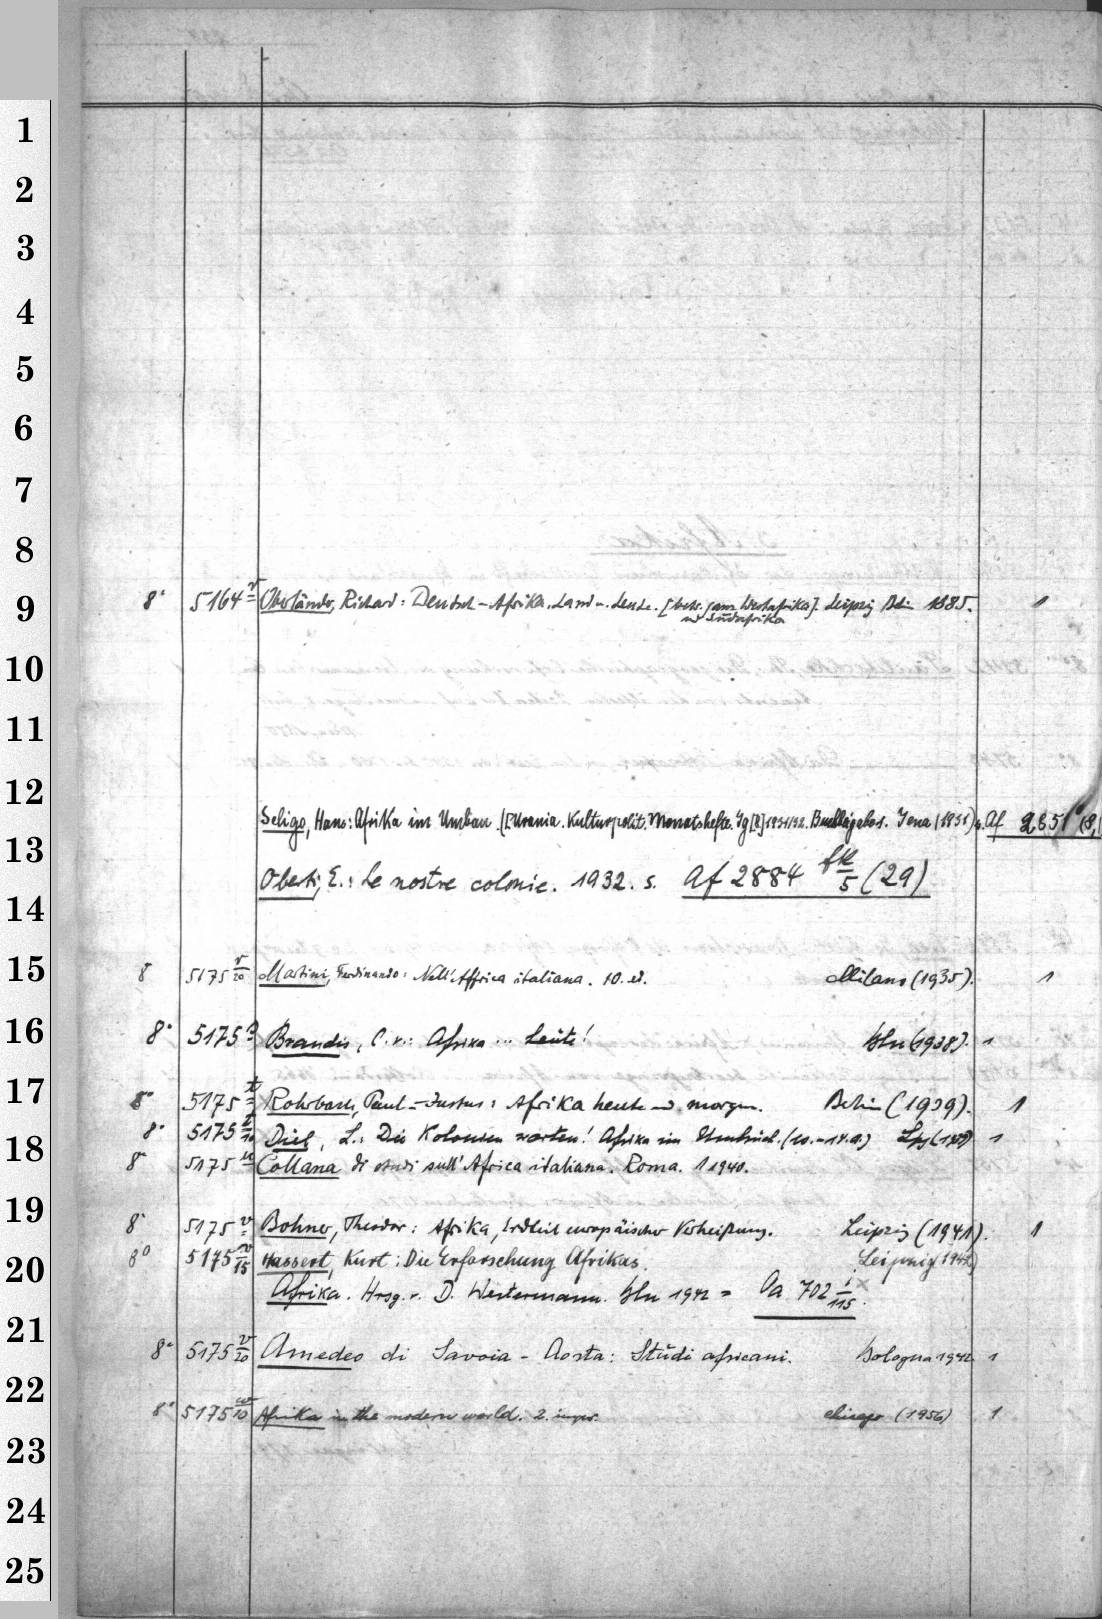 1
2
3
4
5
6
7
8
9
10
11
12
13
14
15
16
17
18
19
20
21
22
23
24
25
8° 5164 Oberländer, Richard: Deutsch-Afrika. Land u. Leute. [betr. ganz Westafrika]. Leipzig Bln 1885. 1
und Südafrika
Seligo, Hans: Afrika im Umbau. (Urania. Kulturpolit. Monatshefte. Jg [8] 1931/32. Jena (1931). Af 2851
Oberti, E.: Le nostre colonie. 1932. s. Af 2884 5 (29)
8° 5175 v/20 Martini, Ferdinando: Nell'Affrica italiana. 10. ed. Milano (1935). 1
8° 5175 s Brandis, C. v.: Afrika ... heute! Bln (1938). 1
8° 5175 t Rohrbach, Paul-Justus: Afrika heute und morgen. Berlin (1939). 1
8° 5175 t/10 Diel, L.: Die Kolonien warten! Afrika im Umbruch. (10.-14.A.) Lpz 1
8° 5175 u Collana di studi sull'Africa italiana. Roma. 1 1940.
8° 5175 v Bohner, Theodor: Afrika, Erdteil europäischer Verheißung. Leipzig (1941). 1
8° 5175 v/15 Hassert, Kurt: Die Erforschung Afrikas. Leipzig (1942)
Afrika. Hrsg. v. D. Westermann. Bln 1942 = Oa 702 i/115.
8° 5175 v/20 Amedeo di Savoia-Aosta: Studi africani. Bologna 1942 1
8° 5175 w/10 Afrika in the modern world. 2. impr. Chicago (1956) 1